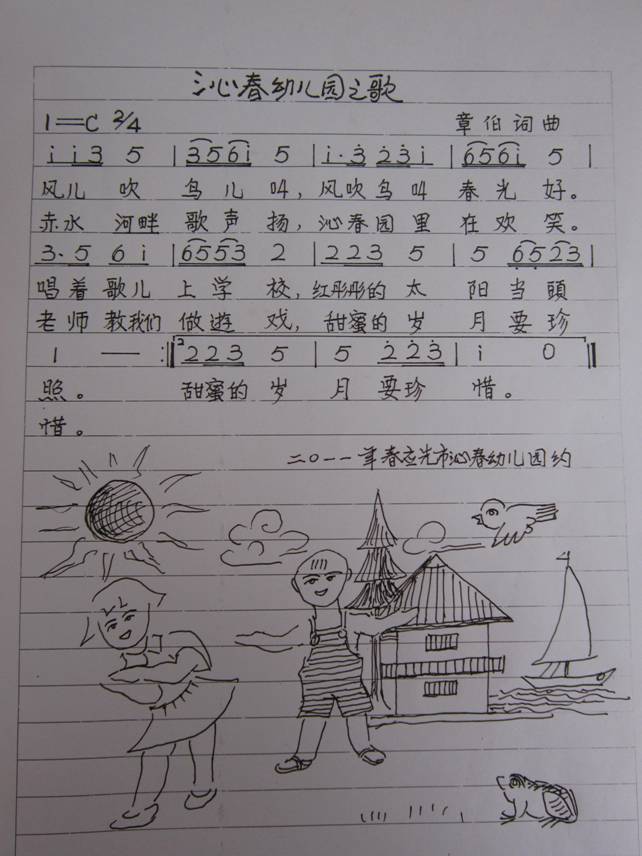 沁春幼儿园之歌
1=C 2/4 章伯词曲
i i 3 5 | 3 5 6 i 5 | i · 3 2 3 i | 6 5 6 i 5 |
风儿 吹 鸟 儿 叫, 风吹鸟叫 春光 好。
赤水 河畔 歌声 扬, 沁春园里 在欢 笑。
3 · 5 6 i | 6 5 5 3 2 | 2 2 3 5 | 5 6 5 2 3 |
唱着歌儿 上学 校, 红彤彤的 太 阳当頭
老师教我们 做遊 戏, 甜蜜的岁 月要珍
1 — :‖ 2 2 2 3 5 | 5 2 2 3 | i 0 ‖
照。 甜蜜的岁 月要珍 惜。
惜。
二〇一一年春应光市沁春幼儿园约